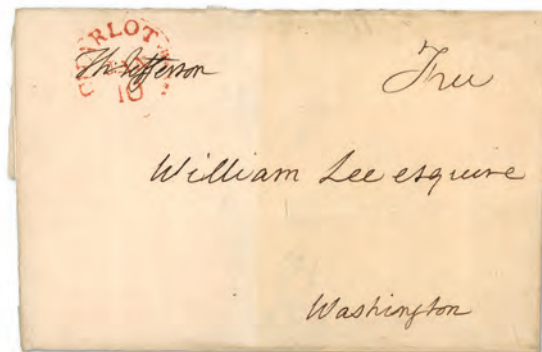 CHARLOT
Th: Jefferson Free
10
William Lee esquire
Washington